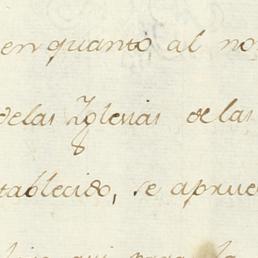 en quanto al no
de las Yglesias de las
tablecido, se aprue